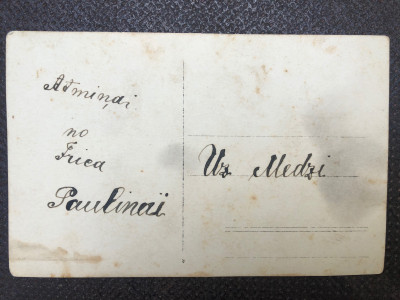 Atmiņai
no
Frica
Paulinai
Uz Medzi